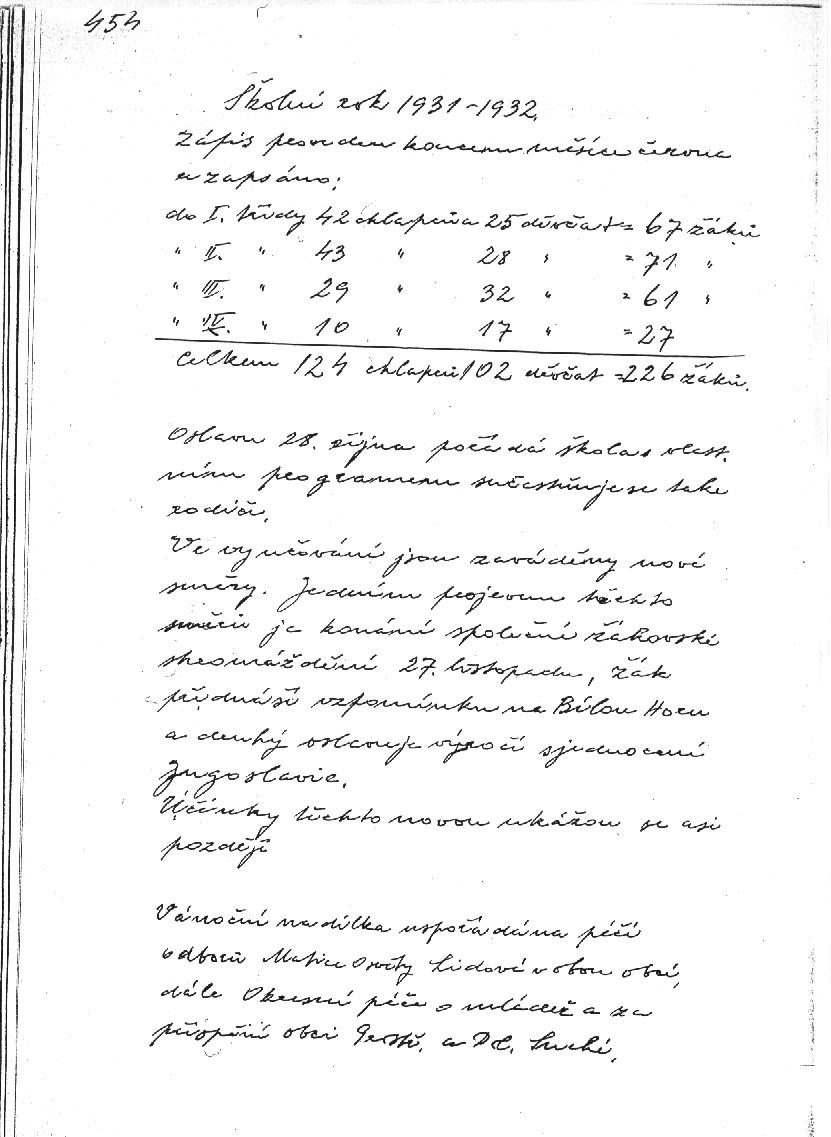 454
Školní rok 1931-1932.
Zápis proveden koncem měsíce června
a zapsáno:
do I. třídy 42 chlapců a 25 děvčat = 67 žáků
" II. " 43 " 28 " = 71 "
" III. " 29 " 32 " = 61 "
" IV. " 10 " 17 " = 27
Celkem 124 chlapců 102 děvčat = 226 žáků.
Oslavu 28. října pořádá škola s vlast.
ním programem súčastňuje se také
rodiči.
Ve vyučování jsou zaváděny nové
směry. Jedním projevem těchto
směrů je konání společné žákovské
shromáždění 27. listopadu, žák
přednáší vzpomínku na Bílou Horu
a druhý oslavuje výročí sjednocení
Jugoslavie.
Účinky těchto novou ukážou se asi
později
Vánoční nadílka uspořádána péčí
odborů Matice Osvěty Lidové v obou obcí,
dále Okresní péče o mládež a za
přispění obcí Prostř. a Dol. Suché.